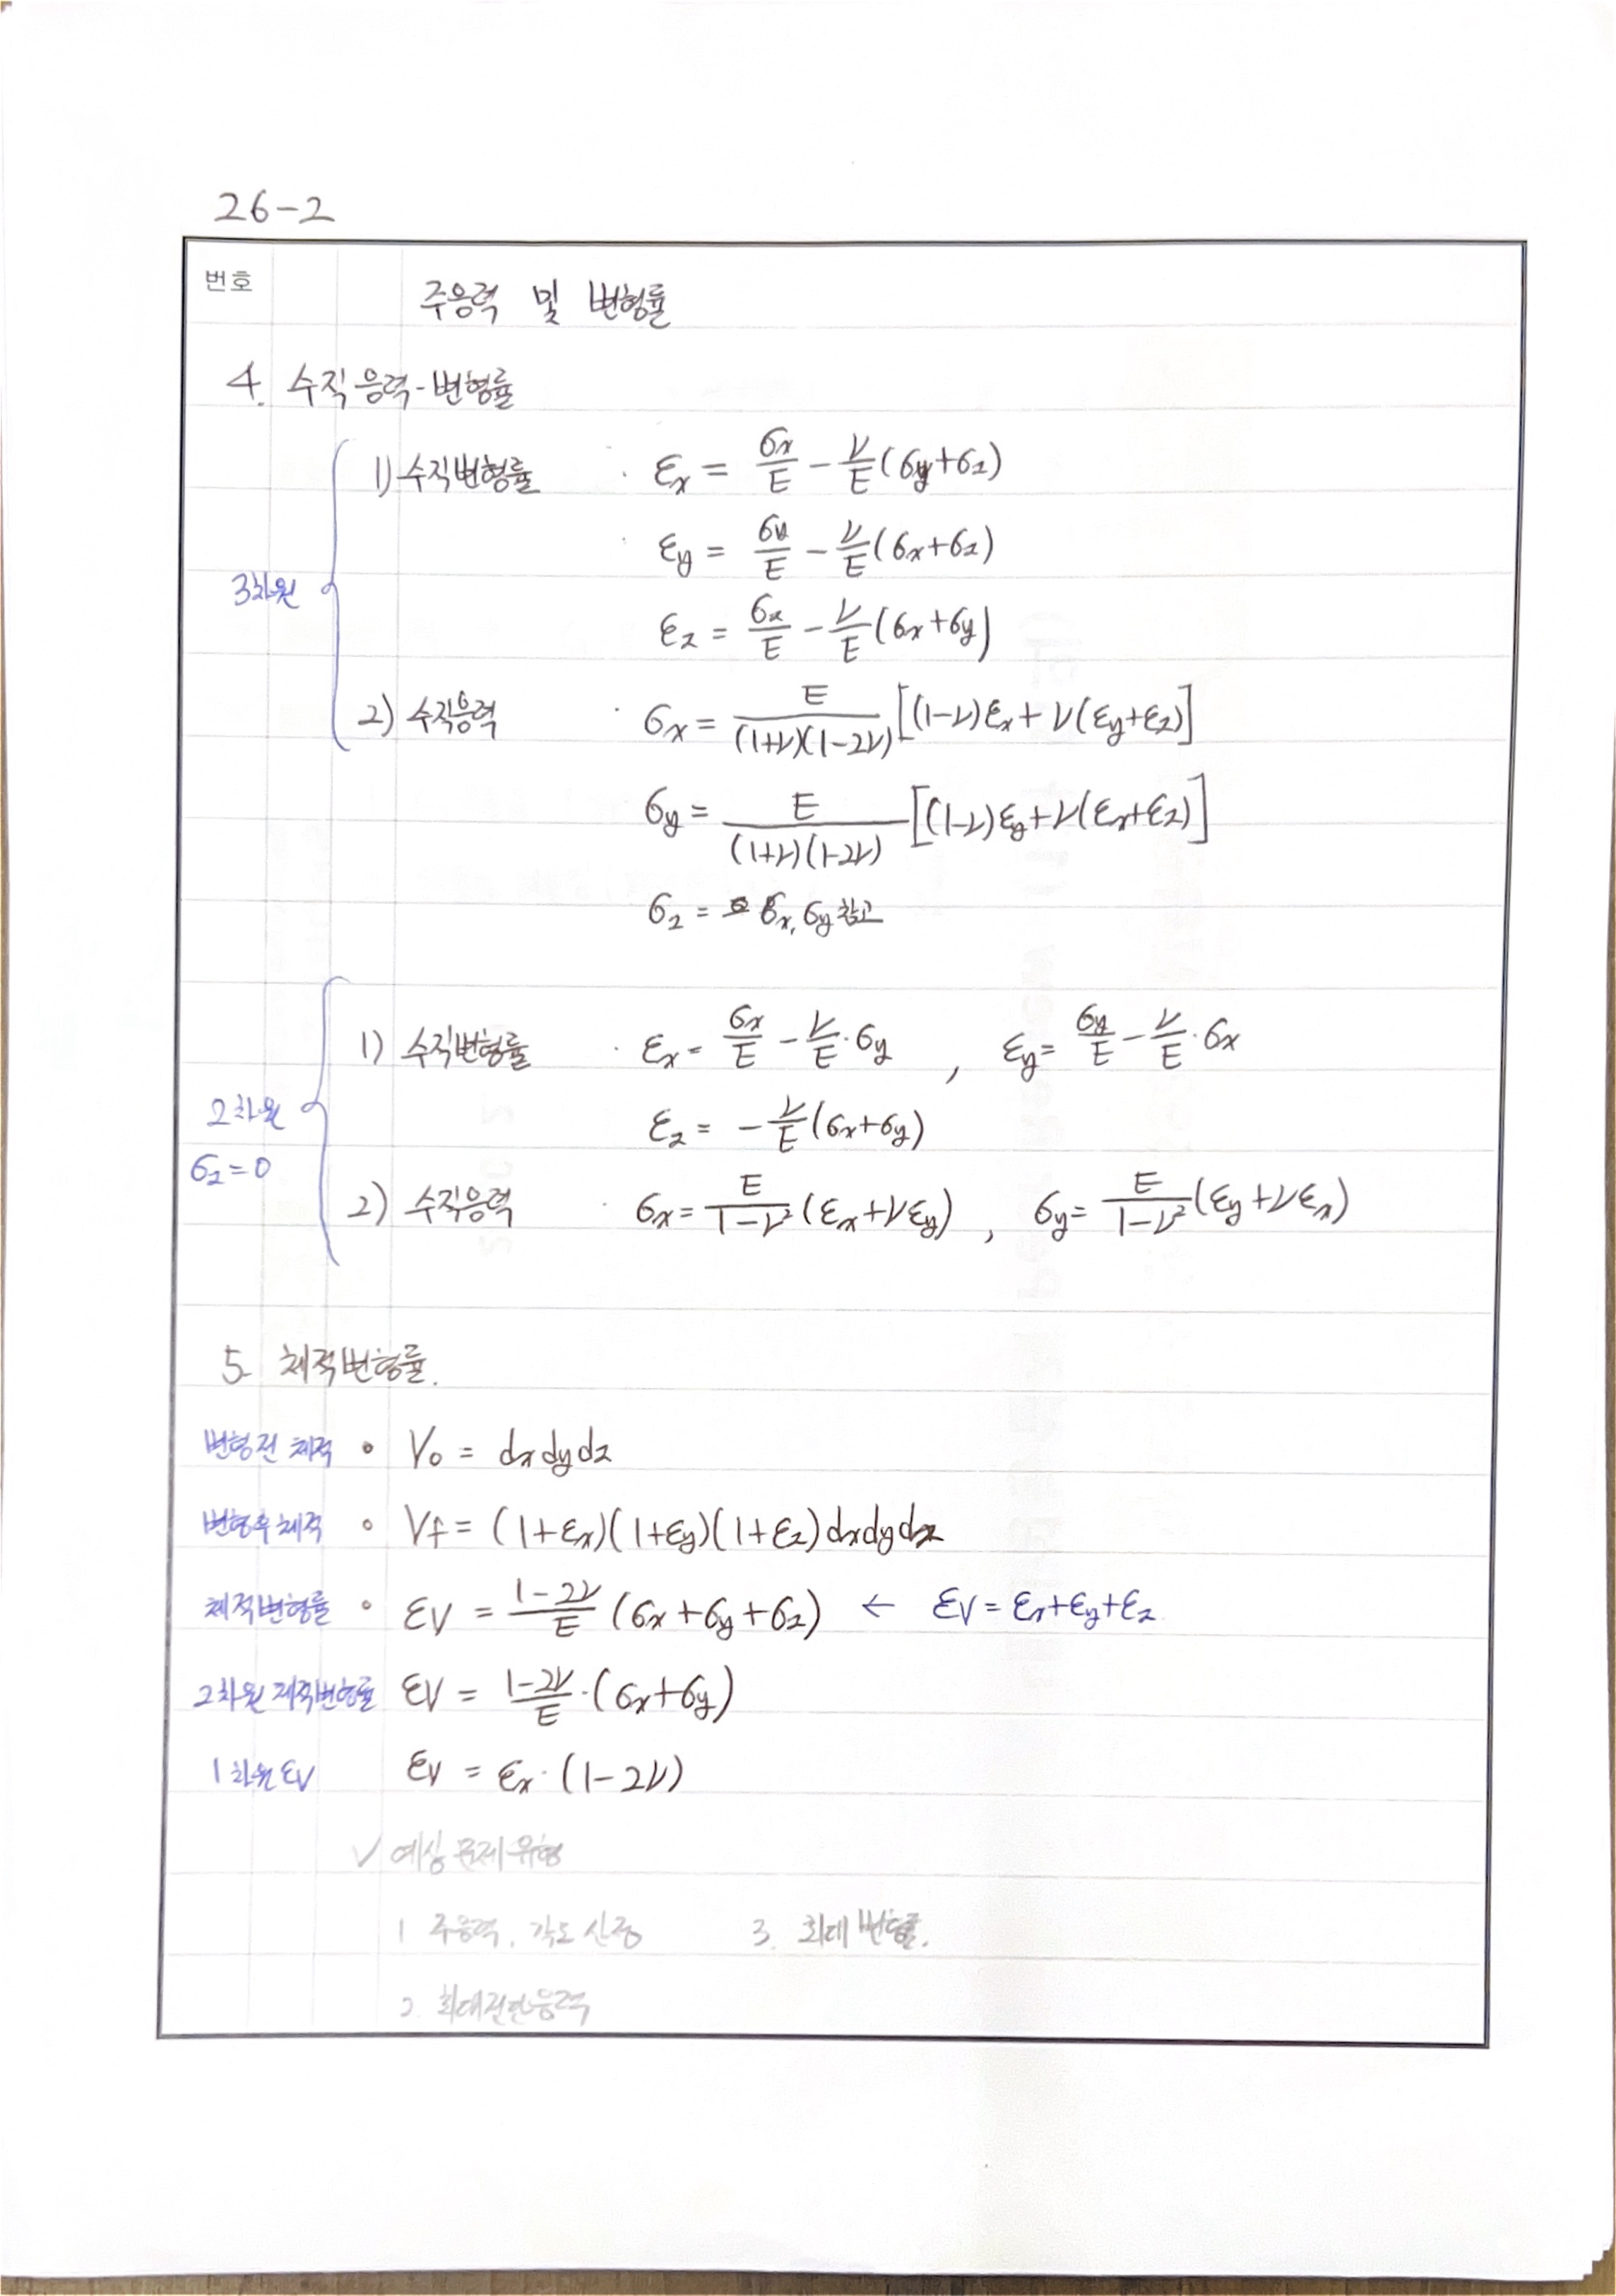 26-2
번호
주응력 및 변형률
4. 수직응력-변형률
3차원
1) 수직변형률 · εx = σx/E - ν/E(σy+σz)
· εy = σy/E - ν/E(σx+σz)
εz = σz/E - ν/E(σx+σy)
2) 수직응력 · σx = E/(1+ν)(1-2ν) [(1-ν)εx + ν(εy+εz)]
σy = E/(1+ν)(1-2ν) [(1-ν)εy+ν(εx+εz)]
σz = σx, σy 참고
2차원
σz=0
1) 수직변형률 · εx = σx/E - ν/E·σy , εy = σy/E - ν/E·σx
εz = - ν/E(σx+σy)
2) 수직응력 · σx = E/1-ν² (εx+νεy) , σy = E/1-ν² (εy+νεx)
5. 체적변형률.
변형전 체적 • V0 = dxdydz
변형후 체적 • Vf = (1+εx)(1+εy)(1+εz)dxdydz
체적변형률 • εV = 1-2ν/E (σx+σy+σz) ← εV = εx+εy+εz
2차원 체적변형률 εV = 1-2ν/E·(σx+σy)
1차원 εV εV = εx·(1-2ν)
√ 예상문제유형
1 주응력, 각도 산정 3. 최대변형률.
2. 최대전단응력